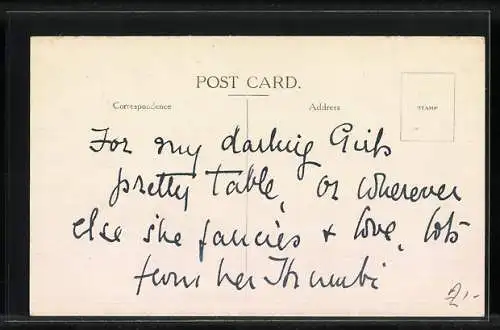 POST CARD.
Correspondence Address
STAMP
For my darling Girls
pretty Table, or wherever
else she fancies & love, lots
from her Thumbi
2,-